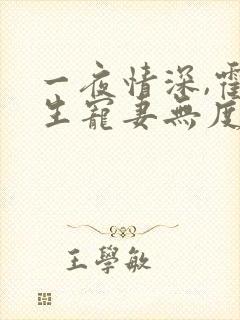 一夜情深,霍
生寵妻無度
王學敏